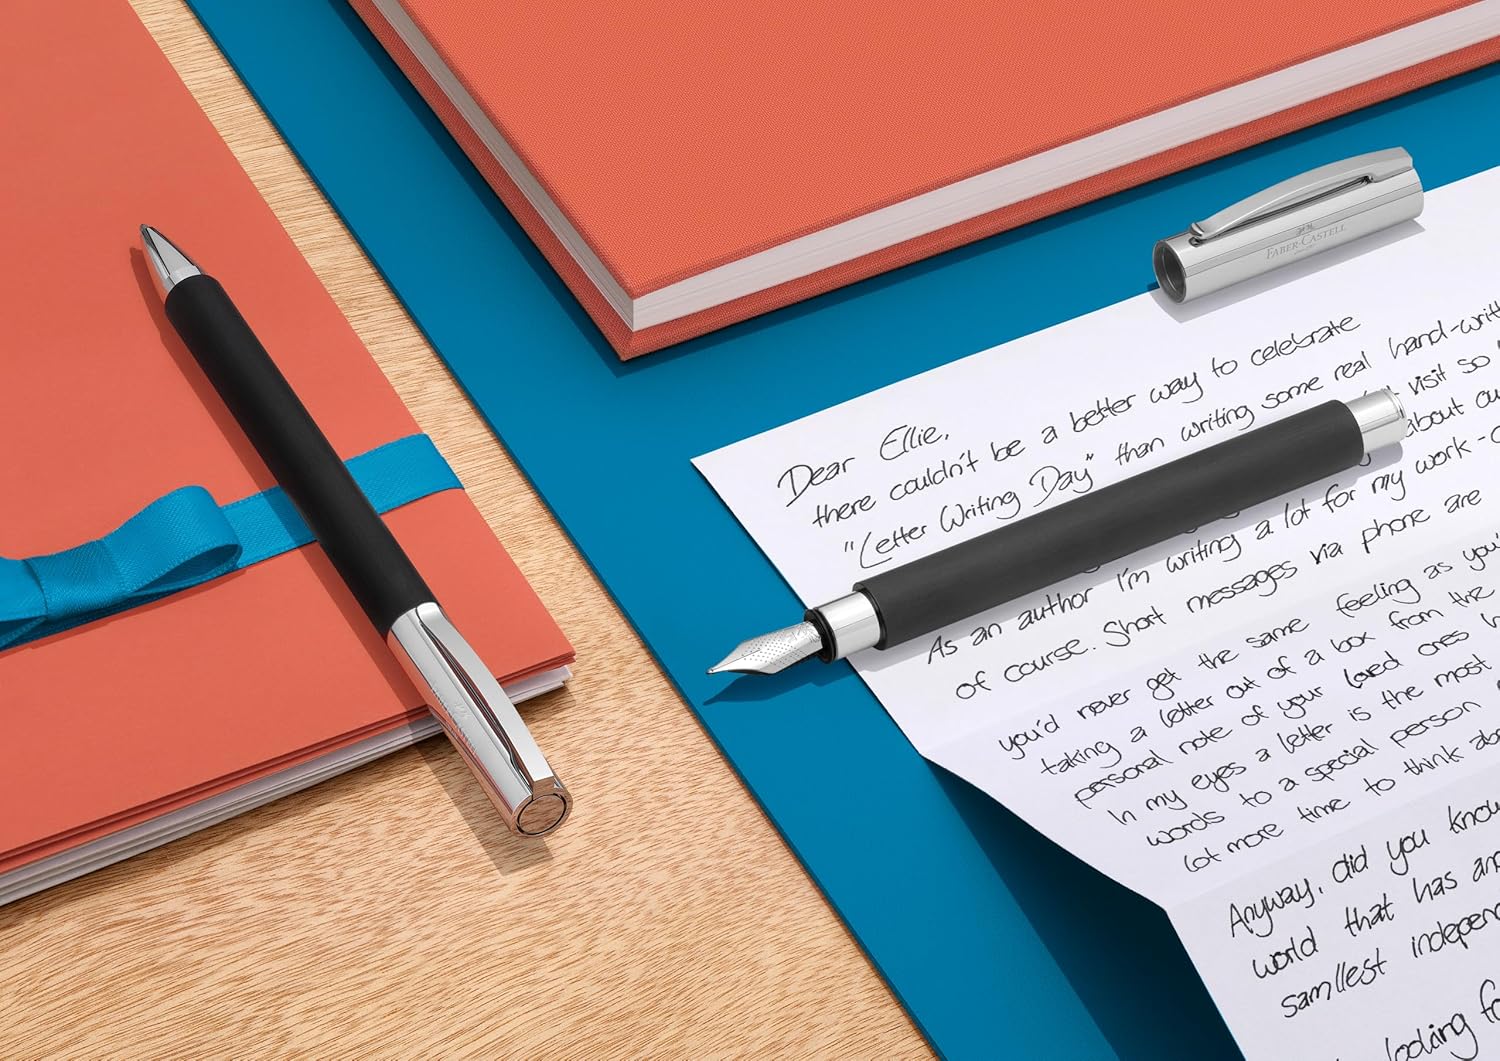 FABER-CASTELL
Dear Ellie,
there couldn't be a better way to celebrate
"Letter Writing Day" than writing some real hand-writt
visit so
about ou
As an author I'm writing a lot for my work -
of course. Short messages via phone are
you'd never get the same feeling as you'
taking a letter out of a box from the
personal note of your loved ones h
In my eyes a letter is the most
words to a special person
lot more time to think abo
Anyway, did you know
world that has an
samllest indepen
looking fo